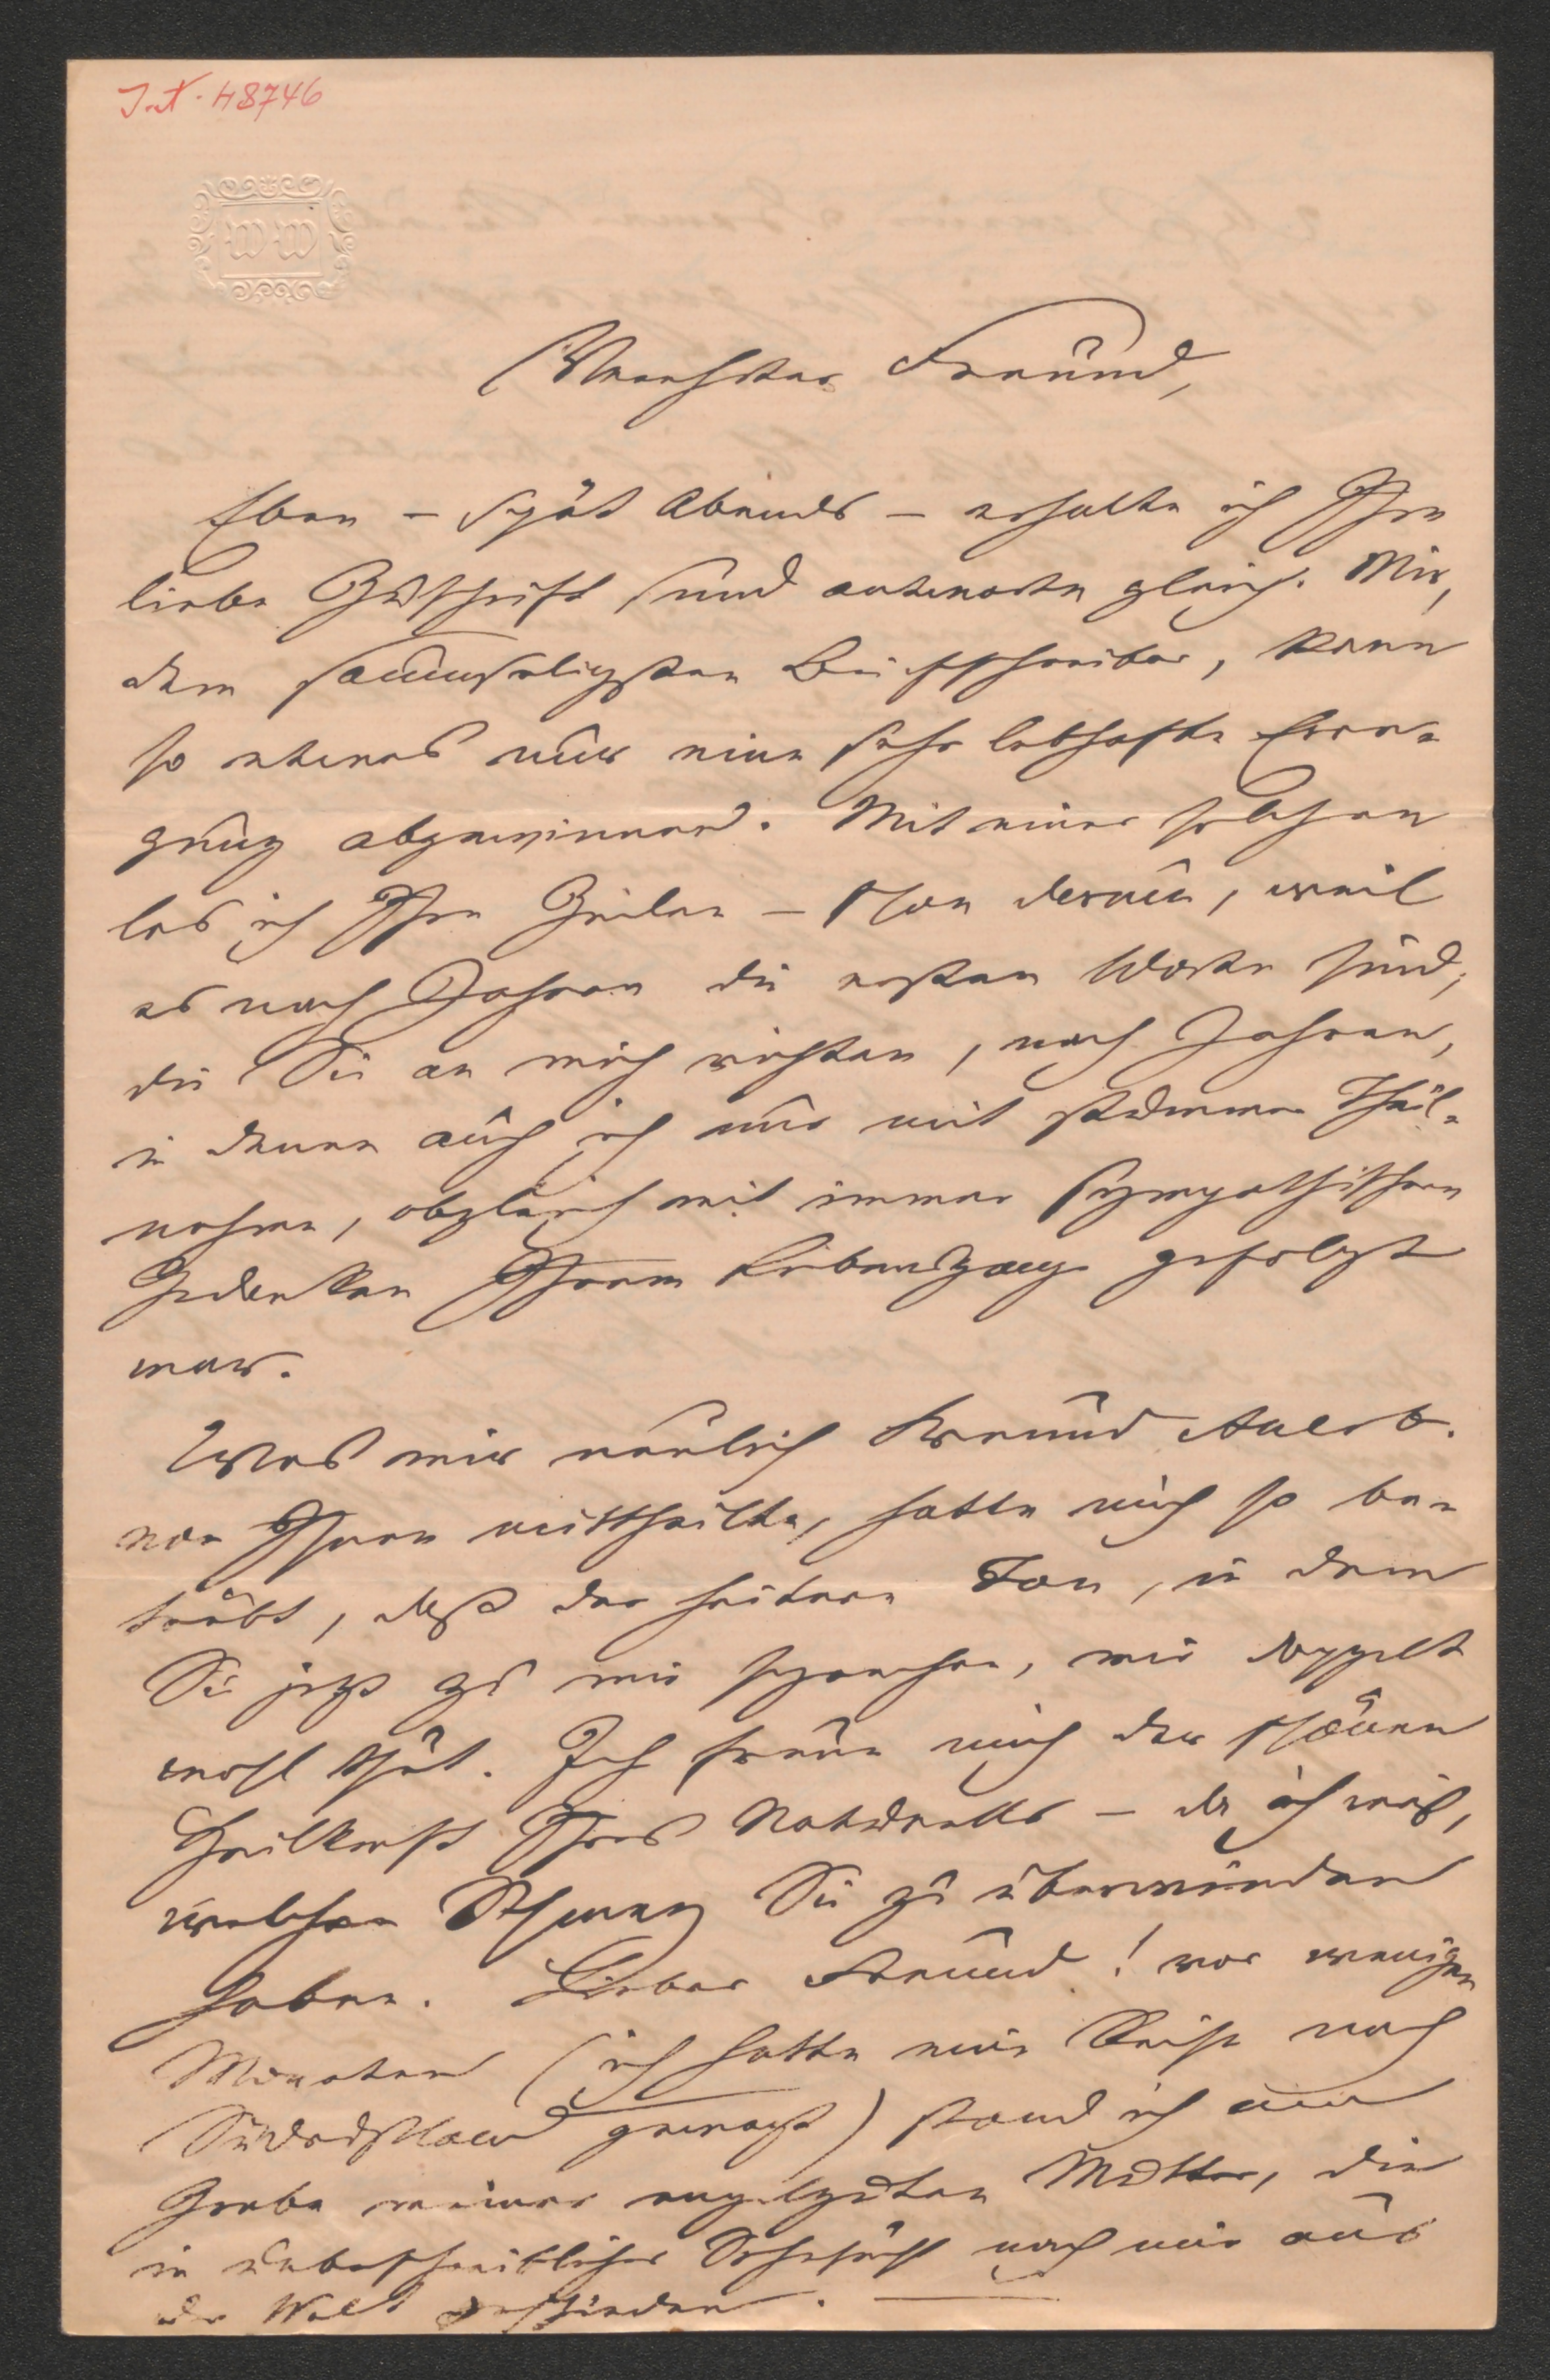 I.N. 48746
WW
Verehrter Freund,
Eben – spät Abends – erhalte ich Ihre
liebe Zuschrift und antworte gleich. Mir,
dem saumseligsten Briefschreiber, kann
so etwas nur eine sehr lebhafte Erre-
gung abgewinnen. Mit einer solchen
las ich Ihre Zeilen – schon darum, weil
es nach Jahren die ersten Worte sind,
die Sie an mich richten, nach Jahren,
in denen auch ich nur mit stummer Theil-
nahme, obgleich mit immer sympathischem
Gedenken Ihrem Lebensgange gefolgt
war.
Was mir neulich Freund
von Ihnen mittheilte, hatte mich so be-
trübt, daß der heitere Ton, in dem
Sie jetzt zu mir sprechen, mir doppelt
wohl thut. Ich freue mich der schönen
Heilkraft Ihres Naturells – da ich weiß,
welchen Schmerz Sie zu überwinden
haben. Lieber Freund! vor wenigen
Monaten (ich hatte eine Reise nach
gemacht) stand ich am
Grabe meiner engelguten Mutter, die
in unbeschreiblicher Sehnsucht nach mir aus
der Welt geschieden. —